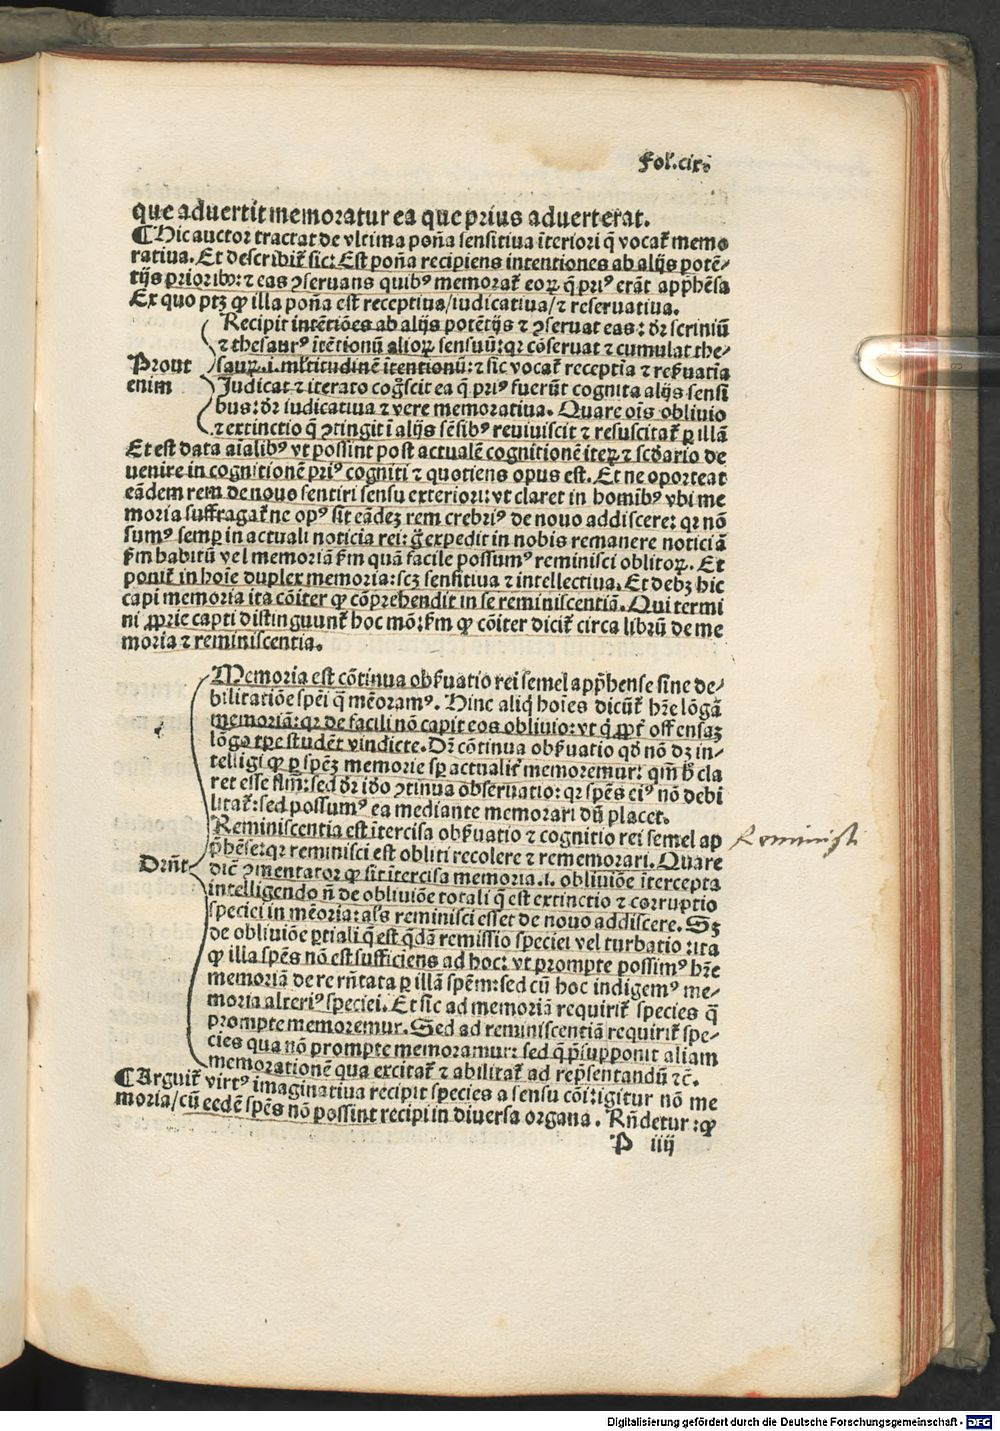 Fol.cix.
que aduertit memoratur ea que prius aduerterat.
¶Hic auctor tractat de vltima poña sensitiua īteriori q̄ vocat᷑ memo
ratiua. Et describit᷑ sic: Est poña recipiens intentiones ab alijs potē⸗
tijs prioribꝰ: ⁊ eas ɔseruans quibꝰ memorat᷑ eoꝝ q̄ priꝰ erāt app̄hēsa
Ex quo ptꝫ ꝙ illa poña est receptiua/iudicatiua/⁊ reseruatiua.
Recipit intētiōes ab alijs potētijs ⁊ ɔseruat eas: dr̄ scriniū
⁊ thesaurꝰ ītētionū alioꝝ sensuū: qr cōseruat ⁊ cumulat the⸗
Prout
sauꝝ.i.ml̄titudinē ītentionū: ⁊ sic vocat᷑ receptīa ⁊ res̄uatīa
enim
Judicat ⁊ iterato coḡscit ea q̄ priꝰ fuerūt cognita alijs sensi
bus: dr̄ iudicatiua ⁊ vere memoratiua. Quare oīs obliuio
⁊ extinctio q̄ ɔtingit ī alijs sēsibꝰ reuiuiscit ⁊ resuscitat᷑ ꝑ illā
Et est data aīalibꝰ vt possint post actualē cognitionē iteꝝ ⁊ scd̄ario de
uenire in cognitionē priꝰ cogniti ⁊ quotiens opus est. Et ne oporteat
eādem rem de nouo sentiri sensu exteriori: vt claret in homībꝰ vbi me
moria suffragat᷑ ne opꝰ sit eādeꝫ rem crebriꝰ de nouo addiscere: qr nō
sumꝰ semꝑ in actuali noticia rei: g̊ expedit in nobis remanere noticiā
s̄m habitū vel memoriā s̄m quā facile possumꝰ reminisci oblitoꝝ. Et
ponit᷑ in hoīe duplex memoria: scꝫ sensitiua ⁊ intellectiua. Et debꝫ hic
capi memoria ita cōiter ꝙ cōprehendit in se reminiscentiā. Qui termi
ni ꝓprie capti distinguunt᷑ hoc mō: s̄m ꝙ cōiter dicit᷑ circa librū de me
moria ⁊ reminiscentia.
Memoria est cōtinua obs̄uatio rei semel app̄hense sine de⸗
bilitatiōe spēi q̄ mēoramꝰ. Hinc aliq̄ hoīes dicūt᷑ hr̄e lōgā
memoriā: qr de facili nō capit eos obliuio: vt q̄ ꝓpt̄ offensaꝫ
lōgo tꝑe studēt vindicte. Dr̄ cōtinua obs̄uatio qd̄ nō dꝫ in⸗
telligi ꝙ ꝑ spēꝫ memorie sꝑ actualit᷑ memoremur: qm̄ h̄ cla
ret esse flm̄: sed dr̄ iō ɔtinua obseruatio: qr spēs eiꝰ nō debi
litat᷑: sed possumꝰ ea mediante memorari dū placet.
Reminiscentia est ītercisa obs̄uatio ⁊ cognitio rei semel ap
Reminisci
p̄hēse: qr reminisci est obliti recolere ⁊ rememorari. Quare
Dr̄nt᷑
dicit᷑ ɔmentator ꝙ sit ītercisa memoria.i. obliuiōe ītercepta
intelligendo n̄ de obliuiōe totali q̄ est extinctio ⁊ corruptio
speciei in mēoria: al̄s reminisci esset de nouo addiscere. Sꝫ
de obliuiōe ꝑtiali q̄ est q̄dā remissio speciei vel turbatio: ita
ꝙ illa spēs nō est sufficiens ad hoc: vt prompte possimꝰ hr̄e
memoriā de re rn̄tata ꝑ illā spēm: sed cū hoc indigemꝰ me⸗
moria alteriꝰ speciei. Et sic ad memoriā requirit᷑ species q̄
prompte memoremur. Sed ad reminiscentiā requirit᷑ spe⸗
cies qua nō prompte memoramur: sed q̄ p̄supponit aliam
memorationē qua excitat᷑ ⁊ abilitat᷑ ad rep̄sentandū ⁊c̄.
¶Arguit᷑ virtꝰ imaginatiua recipit species a sensu cōi: igitur nō me
moria/cū eedē spēs nō possint recipi in diuersa organa. Rn̄detur: ꝙ
P iiij
Digitalisierung gefördert durch die Deutsche Forschungsgemeinschaft - DFG